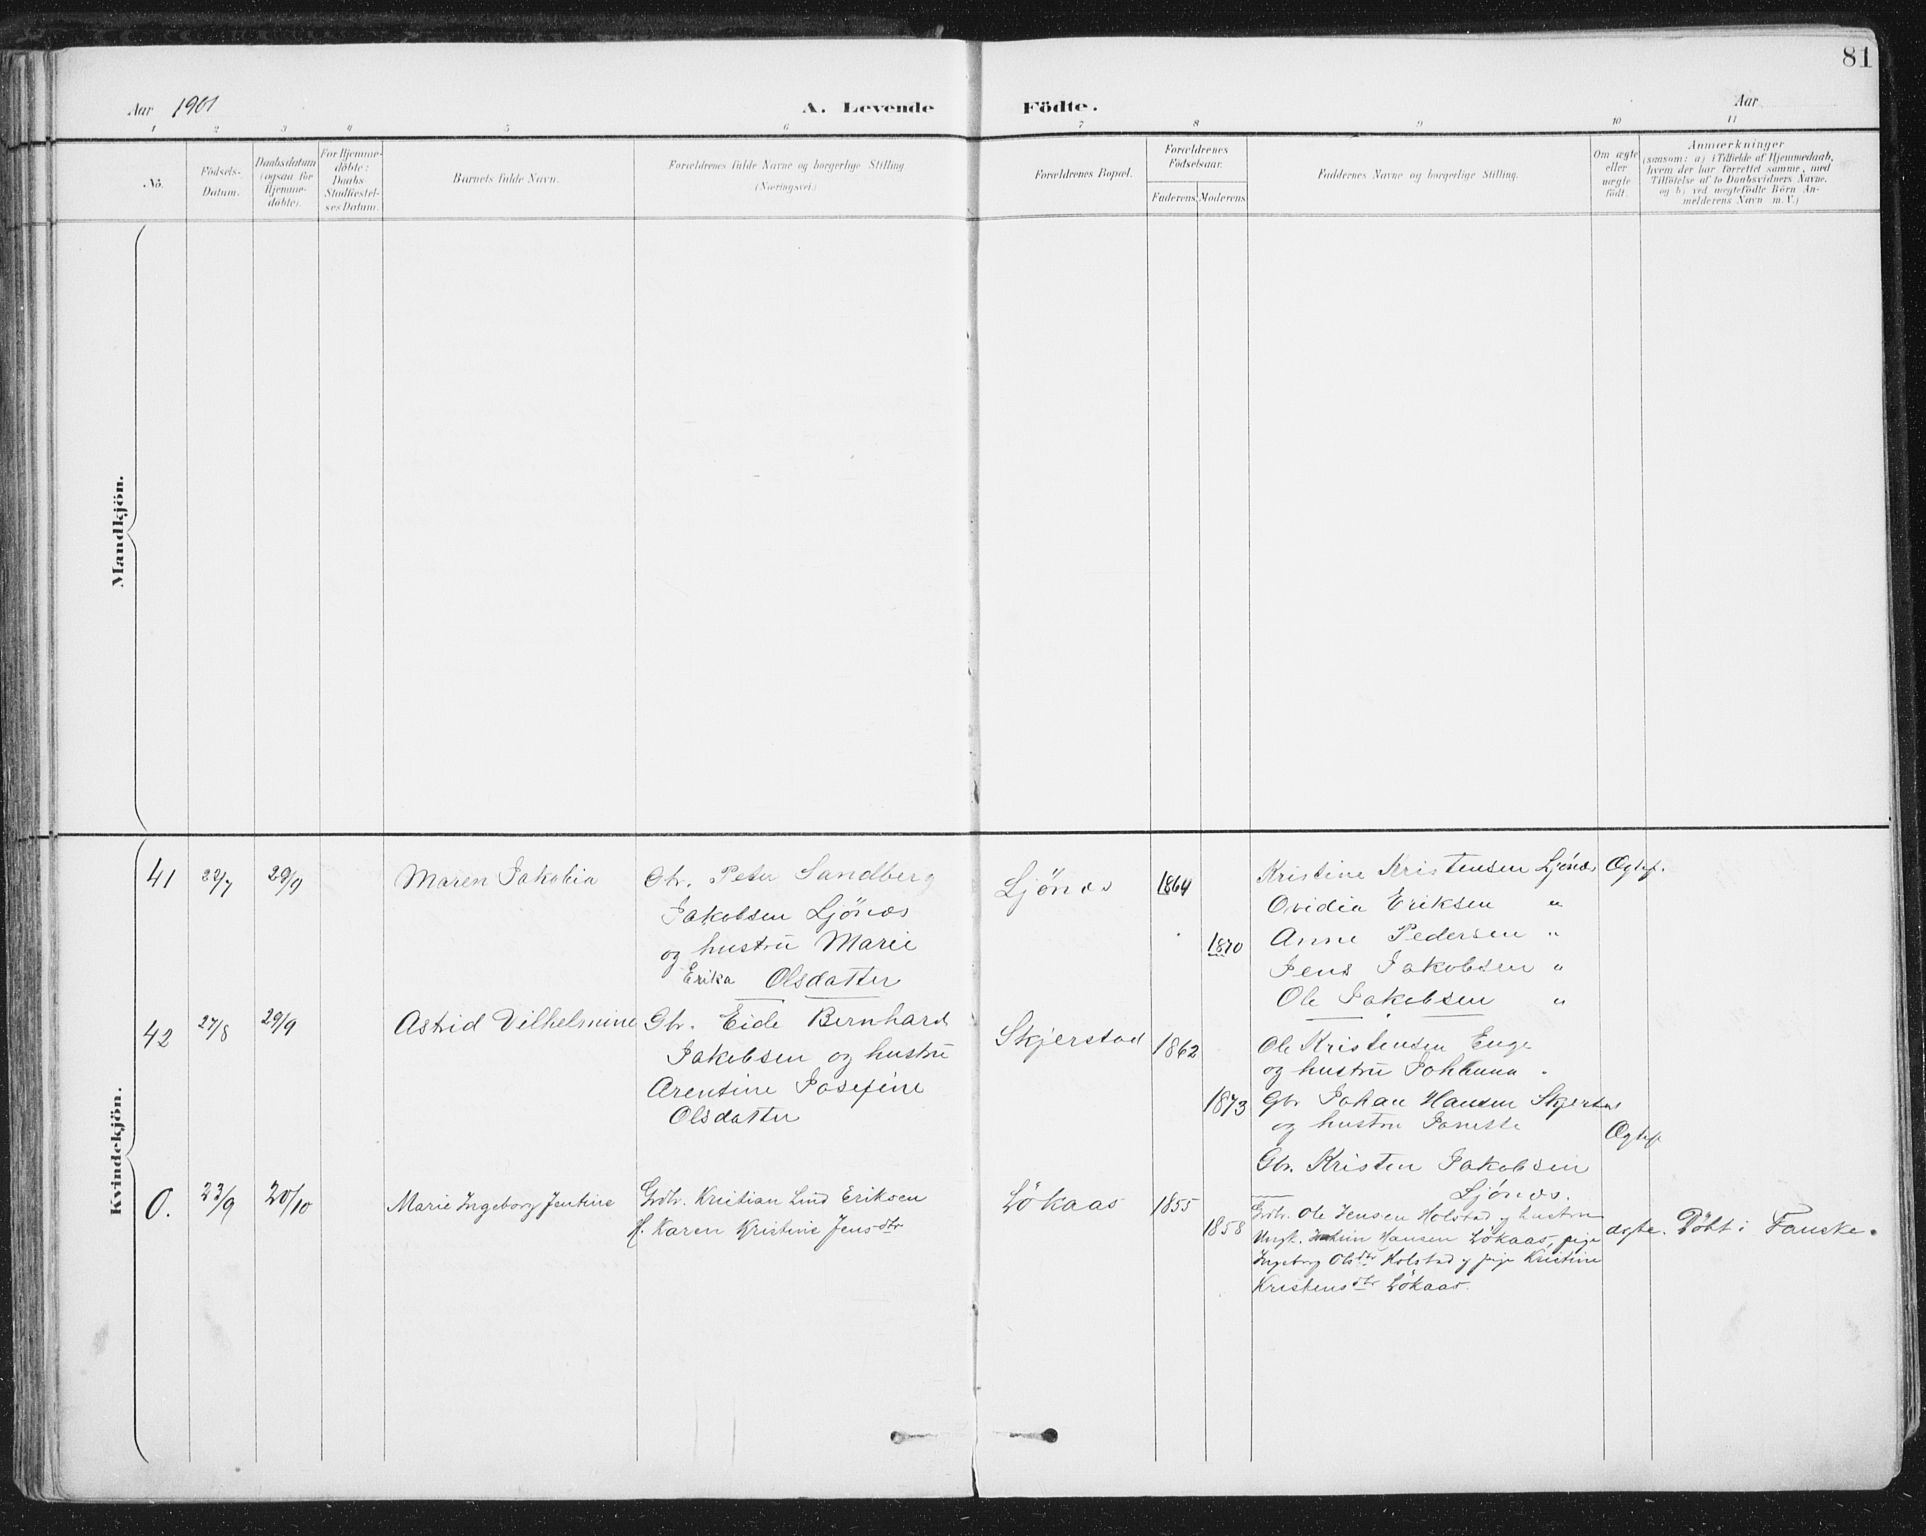 81
Aar 1901
A. Levende Födte.
Aar
1 2 3 4 5 6 7 8 9 10 11
No.
Födsels-Datum.
Daabsdatum (ogsaa for Hjemme-döbte).
For Hjemme-döbte: Daabs Stadfæstel-ses Datum.
Barnets fulde Navn.
Forældrenes fulde Navne og borgerlige Stilling (Næringsvei.)
Forældrenes Bopæl.
Forældrenes Födselsaar.
Faderens. Moderens.
Faddernes Navne og borgerlige Stilling.
Om ægte eller uægte födt.
Anmærkninger
(saasom: a) i Tilfælde af Hjemmedaab,
hvem der har forrettet samme, med
Tilföielse af to Daabsvidners Navne.
og b) ved uægtefödte Börn An-
melderens Navn m. V.)
Mandkjön.
Kvindekjön.
41 22/7 29/9 Maren Jakobia Gbr. Peter Sandberg
Jakobsen Ljönæs
og hustru Marie
Erika Olsdatter
Ljönæs 1864
1870
Kristine Kristensen Ljönæs Ægtef.
Ovidia Eriksen "
Anne Pedersen "
Jens Jakobsen "
Ole Jakobsen "
42 27/8 29/9 Astrid Vilhelmine Gbr. Eide Bernhard
Jakobsen og hustru
Arentine Josefine
Olsdatter
Skjerstad 1862
1873
Ole Kristensen Enge
og hustru Johanna "
Gbr Johan Hansen Skjerstad
og hustru
Ægtef
Gbr. Kristen Jakobsen
Ljönæs.
0. 23/9 20/10 Marie Ingeborg Jentine Grdbr. Kristian Lind Eriksen
H. Karen Kristine Jensdtr
Lökaas 1855
1858
Grdbr. Ole Jensen Holstad og hustru
Ungk. Hansen Lökaas, pige
Ingeborg Olsdtr Holstad og pige Kristine
Kristensdtr Lökaas.
ægte. Döbt i Fauske.